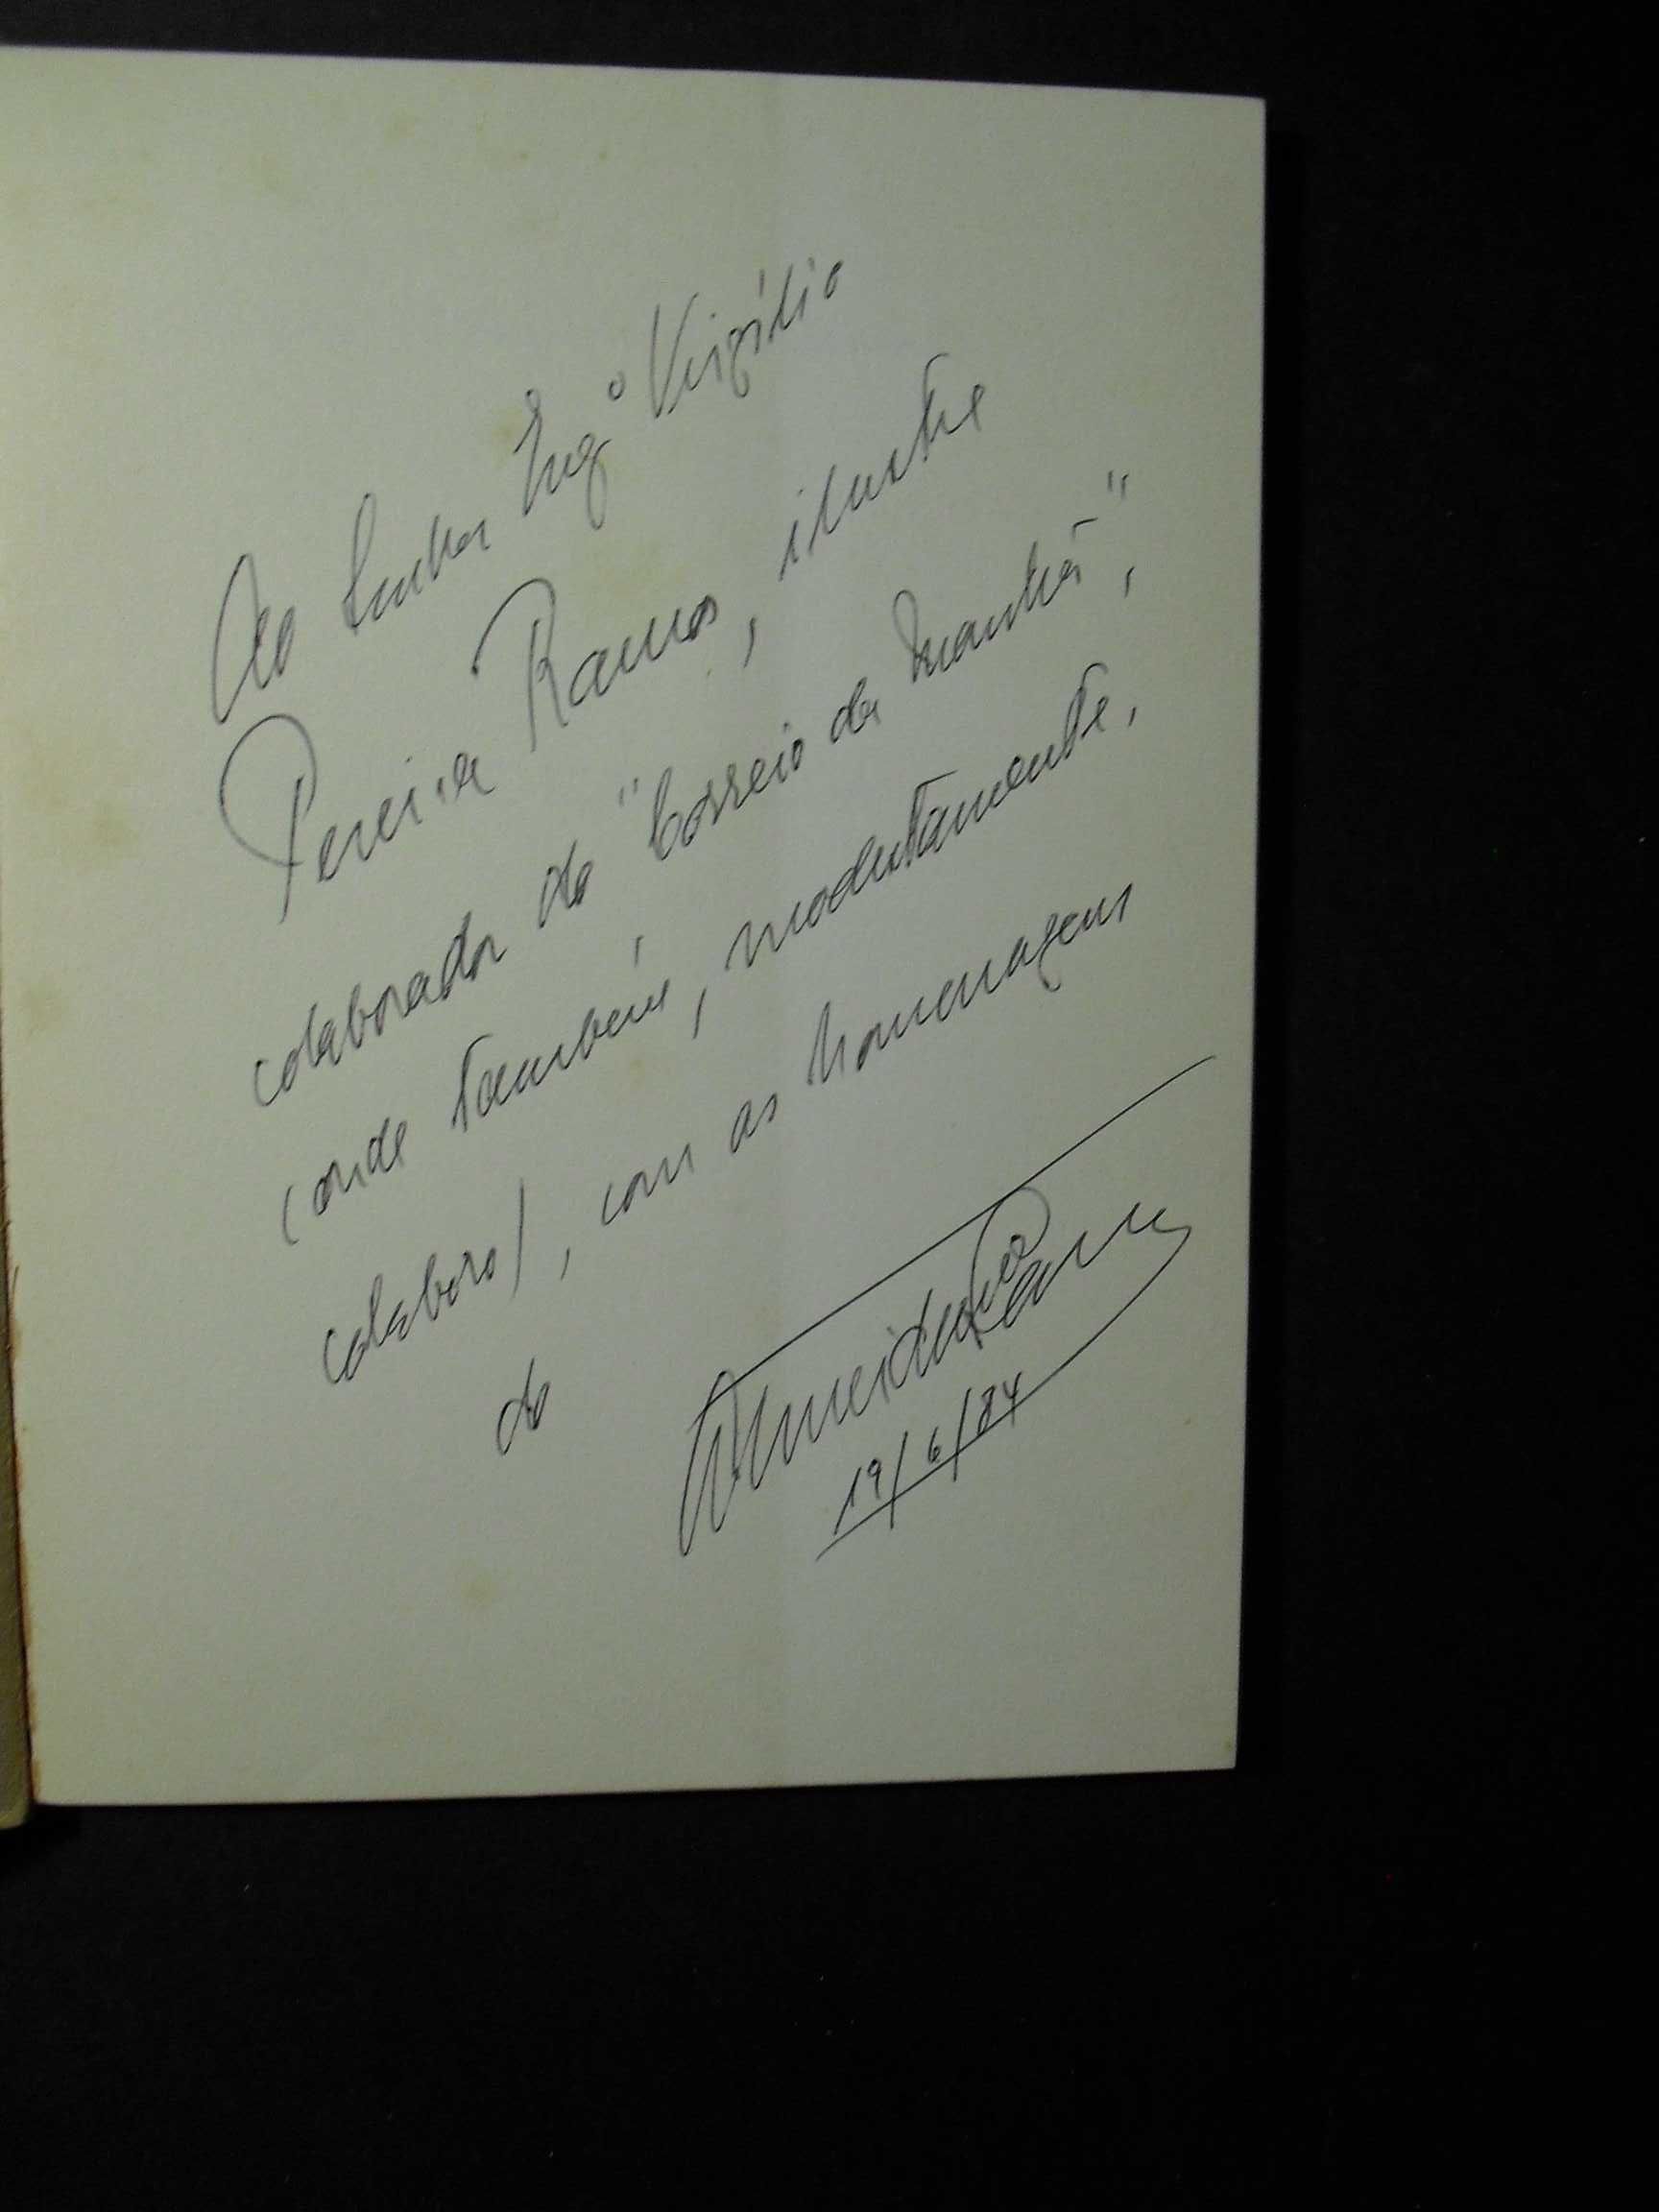 Ao Senhor Eng.º Virgílio
Pereira Ramos, ilustre
colaborador do "Correio da Manhã",
(onde também, modestamente,
colaboro), com as homenagens
do
Almeida
19/6/84